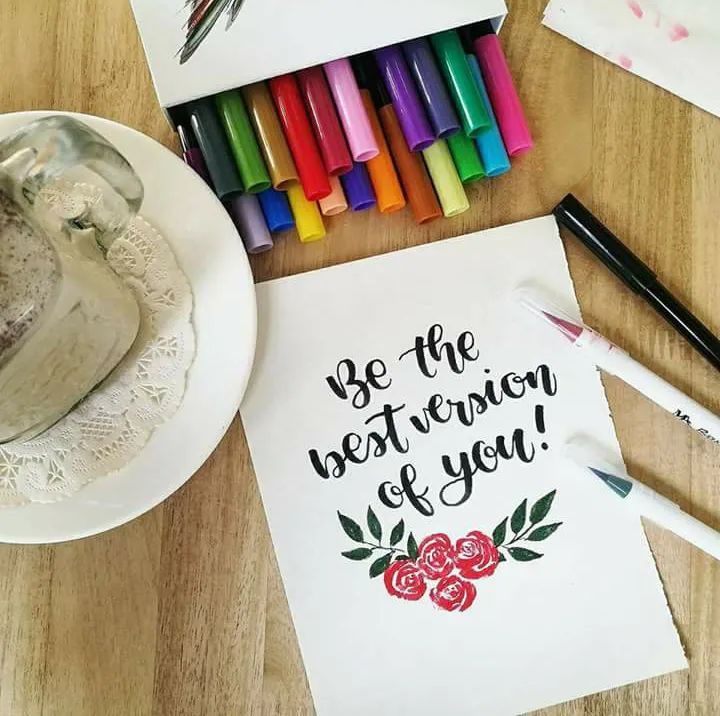 Be the
best version
of you!